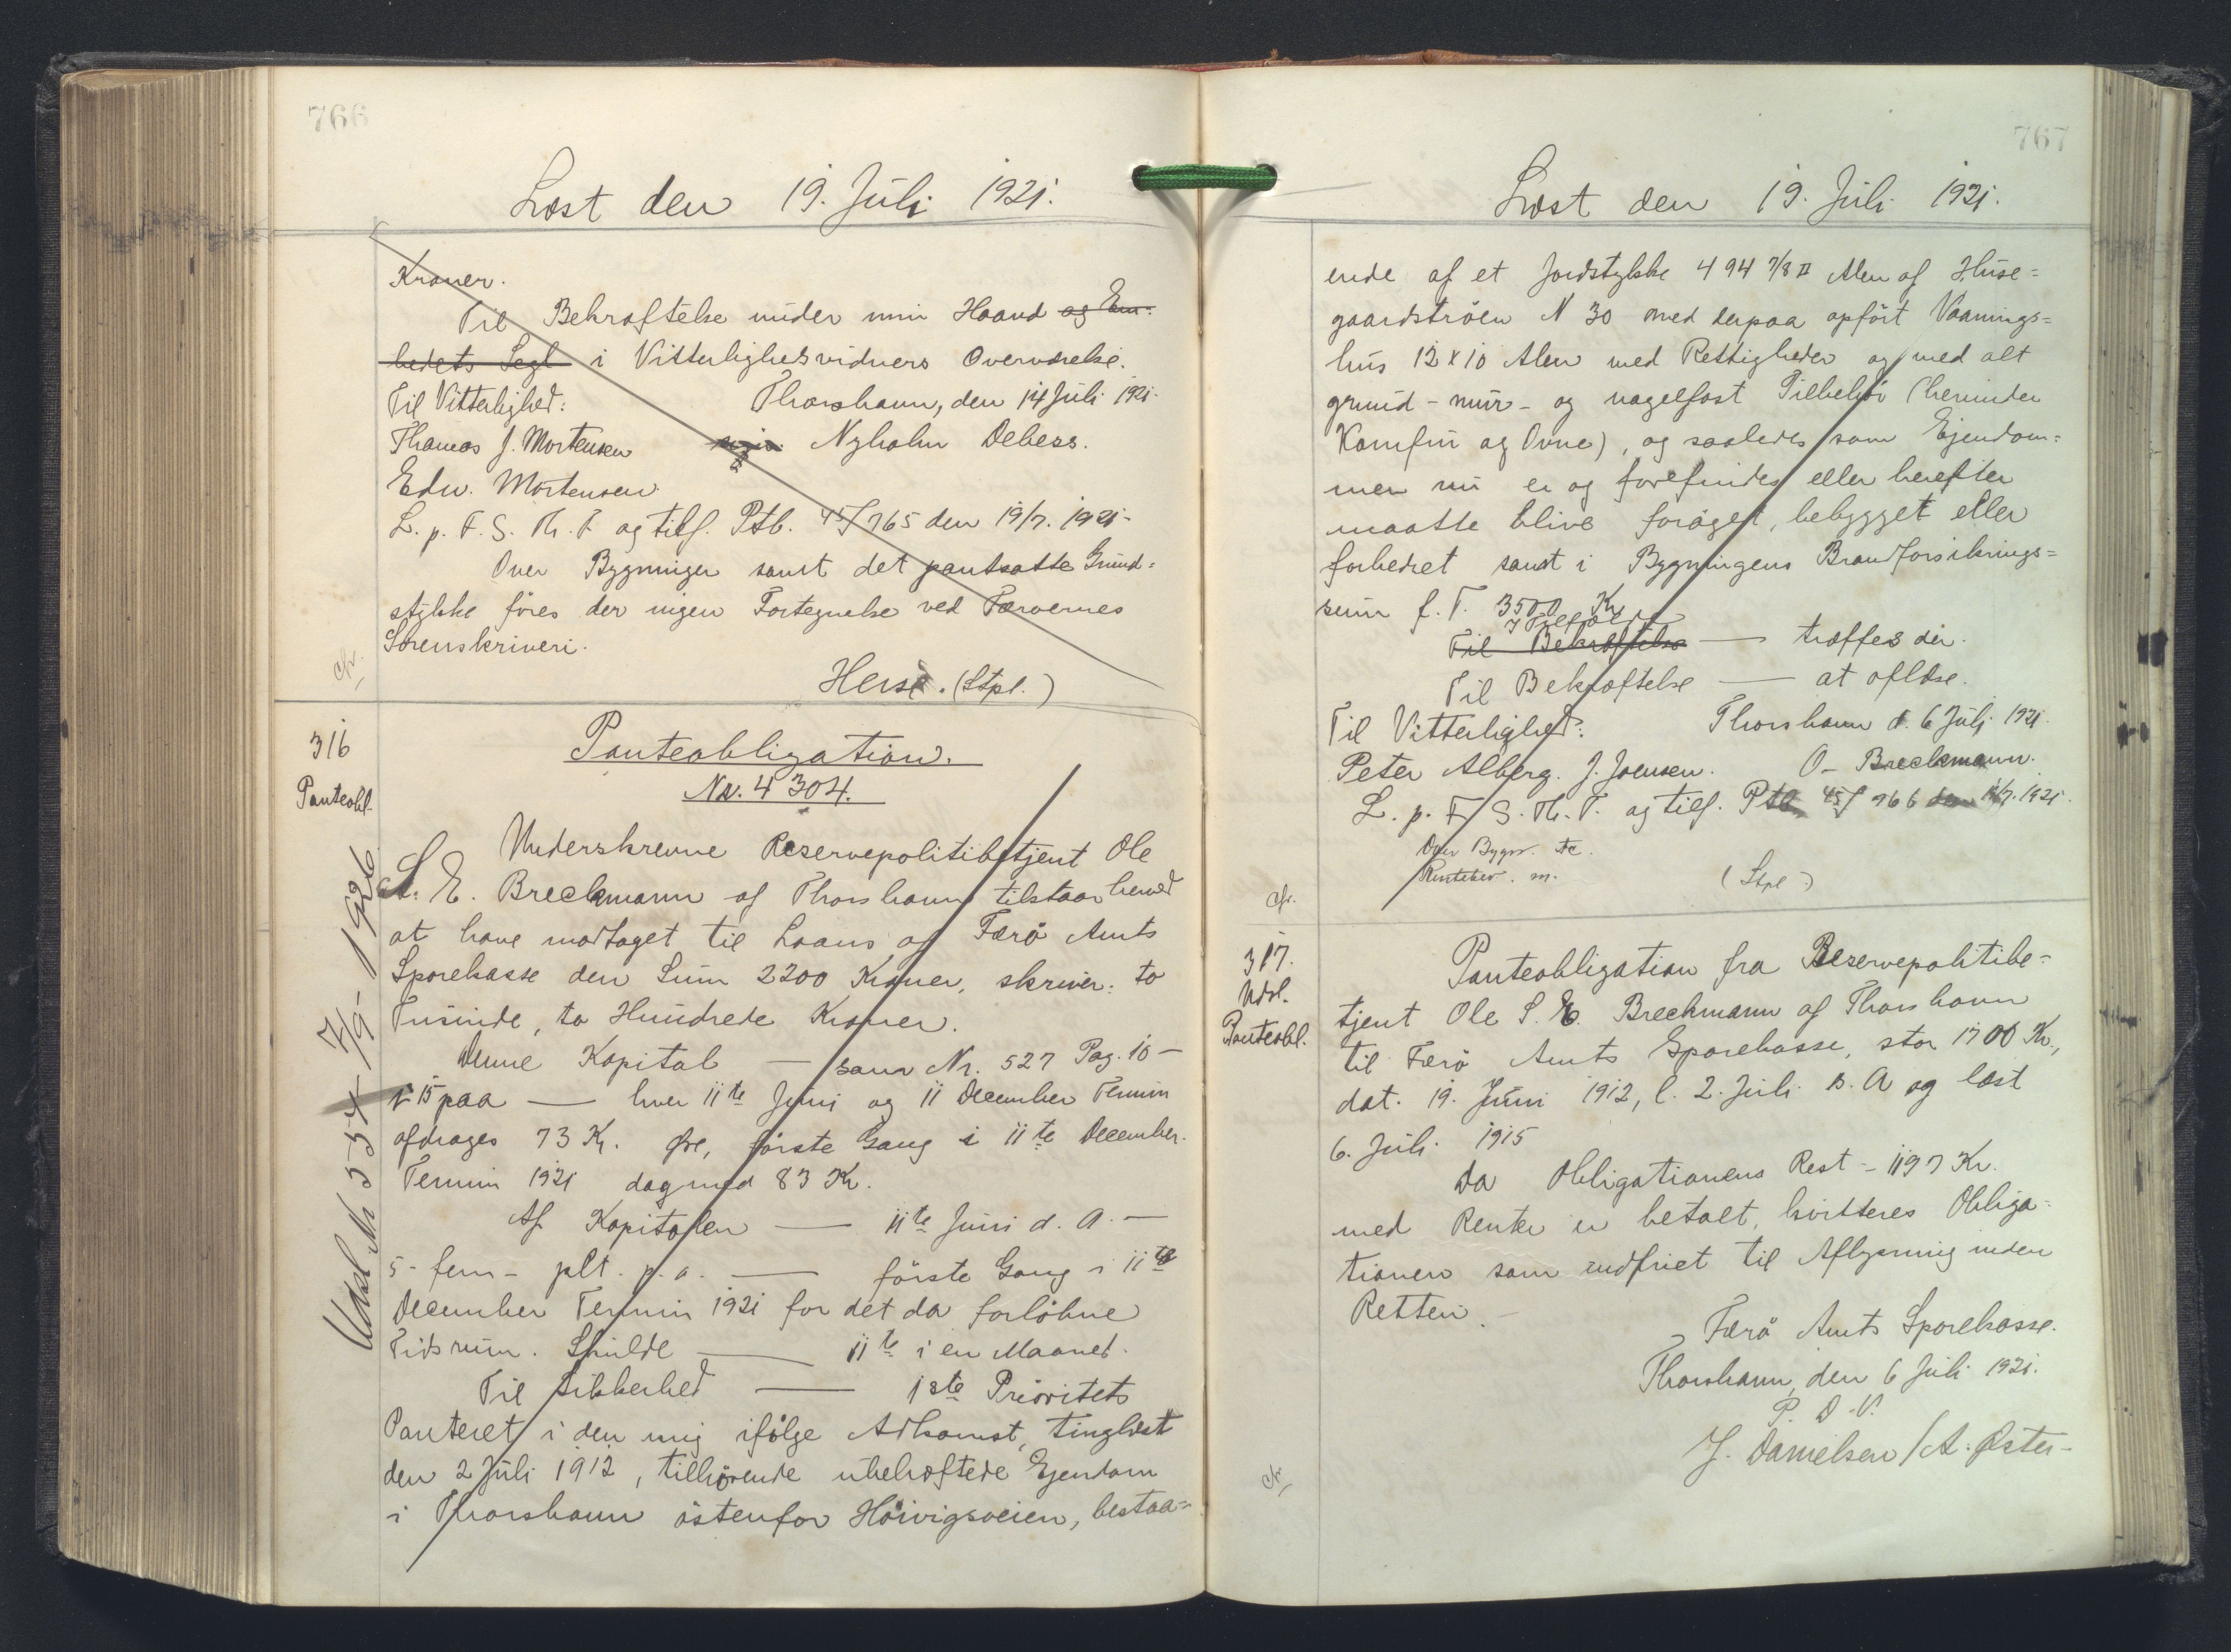 766
Læst den 19. Juli 1921.
Kroner.
Til Bekræftelse under min Haand og Em-
bedets Segl i Vitterlighedsvidners Overværelse.
Til Vitterlighed: Thorshavn, den 14 Juli 1921.
Thomas J. Mortensen Nyholm Debess.
Edw. Mortensen
L. p. F. S. Th. T. og tilf. Ptb. 45/765 den 19/7. 1921.
Over Bygninger samt det pantsatte Grund-
stykke föres der ingen Fortegnelse ved Færöernes
Sorenskriveri.
cfr.
(Stpl.)
316
Panteobl.
Panteobligation.
Nr. 4304.
Underskrevne Reservepolitibetjent Ole
S. E. Breckmann af Thorshavn tilstaar herved
at have modtaget til Laans af Færö Amts
Sparekasse den Sum 2200 Kroner, skriver: to
Tusinde, to Hundrede Kroner.
Denne Kapital — som Nr. 527 Pag. 10 —
15 paa — hver 11te Juni og 11 December Termin
afdrages 73 Kr. Øre, förste Gang i 11te December
Termin 1921 dog med 83 Kr.
Af Kapitalen — 11te Juni d. A. —
5 - fem - pCt. p. a. — förste Gang i 11te
December Termin 1921 for det da forlöbne
Tidsrum. Skulde — 11te i en Maaned.
Til Sikkerhed — 1ste Prioritets
Panteret i den mig ifölge Adkomst, tinglæst
den 2 Juli 1912, tilhörende ubehæftede Ejendom
i Thorshavn östenfor Hoivigsveien, bestaa=
Udsl. Nr 535 7/9 - 1926
767
Læst den 19. Juli 1921.
ende af et Jordstykke 494 7/8 □ Alen af Huse=
gaardströen N 30 med derpaa opfört Vaanings=
hus 12 x 10 Alen med Rettigheder og med alt
grund- mur- og nagelfast Tilbehör (herunder
Komfur og Ovne), og saaledes som Ejendom=
men nu er og forefindes eller herefter
maatte blive foröget, bebygget eller
forbedret samt i Bygningens Brandforsikrings=
sum f. T. 3500 Kr.
I Tilfælde
Til Bekræftelse — træffes der.
Til Bekræftelse — at aflæse.
Til Vitterlighed: Thorshavn d. 6 Juli 1921.
Peter Alberg. J. Joensen. O- Breckmann.
L. p. F. S. Th. T. og tilf. Ptb. 45/766 den 19/7. 1921.
Over Bygn. etc.
(Stpl)
cfr.
317.
Udsl.
Panteobl.
Panteobligation fra Reservepolitibe-
tjent Ole S. E. Breckmann af Thorshavn
til Færö Amts Sparekasse, stor 1700 Kr.,
dat. 19. Juni 1912, l. 2. Juli s. A og læst
6. Juli 1915
Da Obligationens Rest - 1197 Kr.
med Renter er betalt, kvitteres Obliga-
tionen som indfriet til Aflysning inden
Retten.
Færö Amts Sparekasse.
Thorshavn, den 6 Juli 1921.
P. D. V.
J. Danielsen / A. Öster-
cfr.